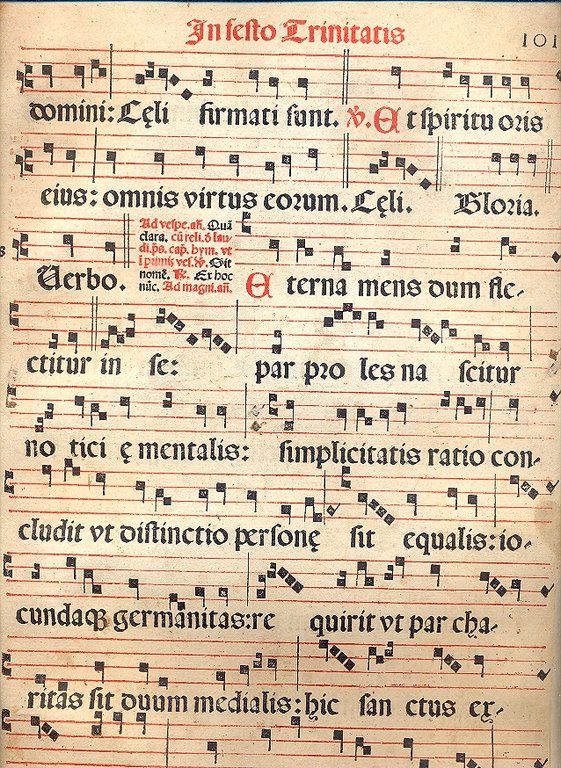 In festo Trinitatis
101
domini: Cęli firmati sunt. ꝟ. Et spiritu oris
eius: omnis virtus eorum. Cęli. Gloria.
Uerbo.
Ad vespe. añ. Quã
clara. cũ reli. d̾ lau-
di. ꝑs. cap. hym. vt
ĩ primis ves. ꝟ. Sit
nomẽ. ℟. Ex hoc
nũc. Ad magni. añ.
Eterna mens dum fle-
ctitur in se: par proles nascitur
notici ę mentalis: simplicitatis ratio con-
cludit vt distinctio personę sit equalis: io-
cundaqȝ germanitas: re quirit vt par cha-
ritas sit duum medialis: hic sanctus ex-